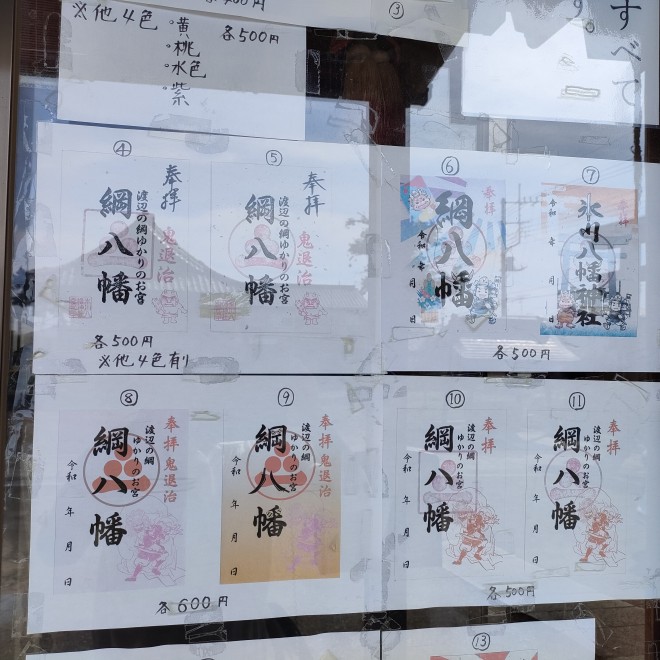 各500円
③
すべて
す。
※他4色
・黄
・桃
・水色
・紫
各500円
④
奉拝
渡辺の綱ゆかりのお宮
綱八幡
鬼退治
⑤
奉拝
渡辺の綱ゆかりのお宮
綱八幡
鬼退治
各500円
※他4色有り
⑥
奉拝
綱八幡
令和 年 月 日
⑦
奉拝
氷川八幡神社
令和 年 月 日
各500円
⑧
奉拝 鬼退治
渡辺の綱
ゆかりのお宮
綱八幡
令和 年 月 日
⑨
奉拝 鬼退治
渡辺の綱
ゆかりのお宮
綱八幡
令和 年 月 日
各600円
⑩
奉拝
渡辺の綱
ゆかりのお宮
綱八幡
令和 年 月 日
⑪
奉拝
渡辺の綱
ゆかりのお宮
綱八幡
令和 年 月 日
各500円
⑬